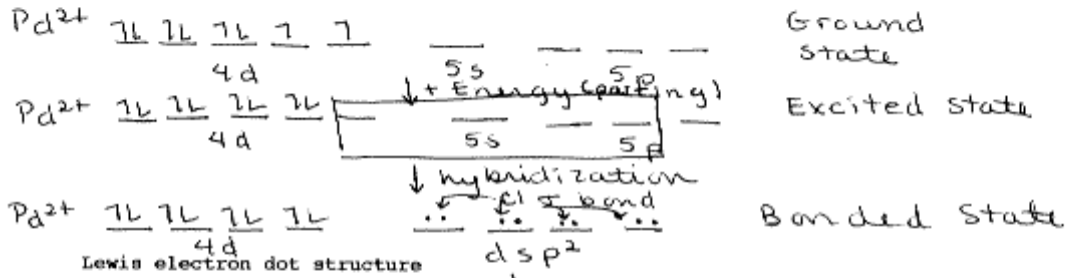 Pd2+ 1L 1L 1L 1 1 Ground
4d 5s 5p State
↓ + Energy (pairing)
Pd2+ 1L 1L 1L 1L Excited State
4d 5s 5p
↓ hybridization
Cl σ bond
Pd2+ 1L 1L 1L 1L .. .. .. .. Bonded State
4d dsp2
Lewis electron dot structure